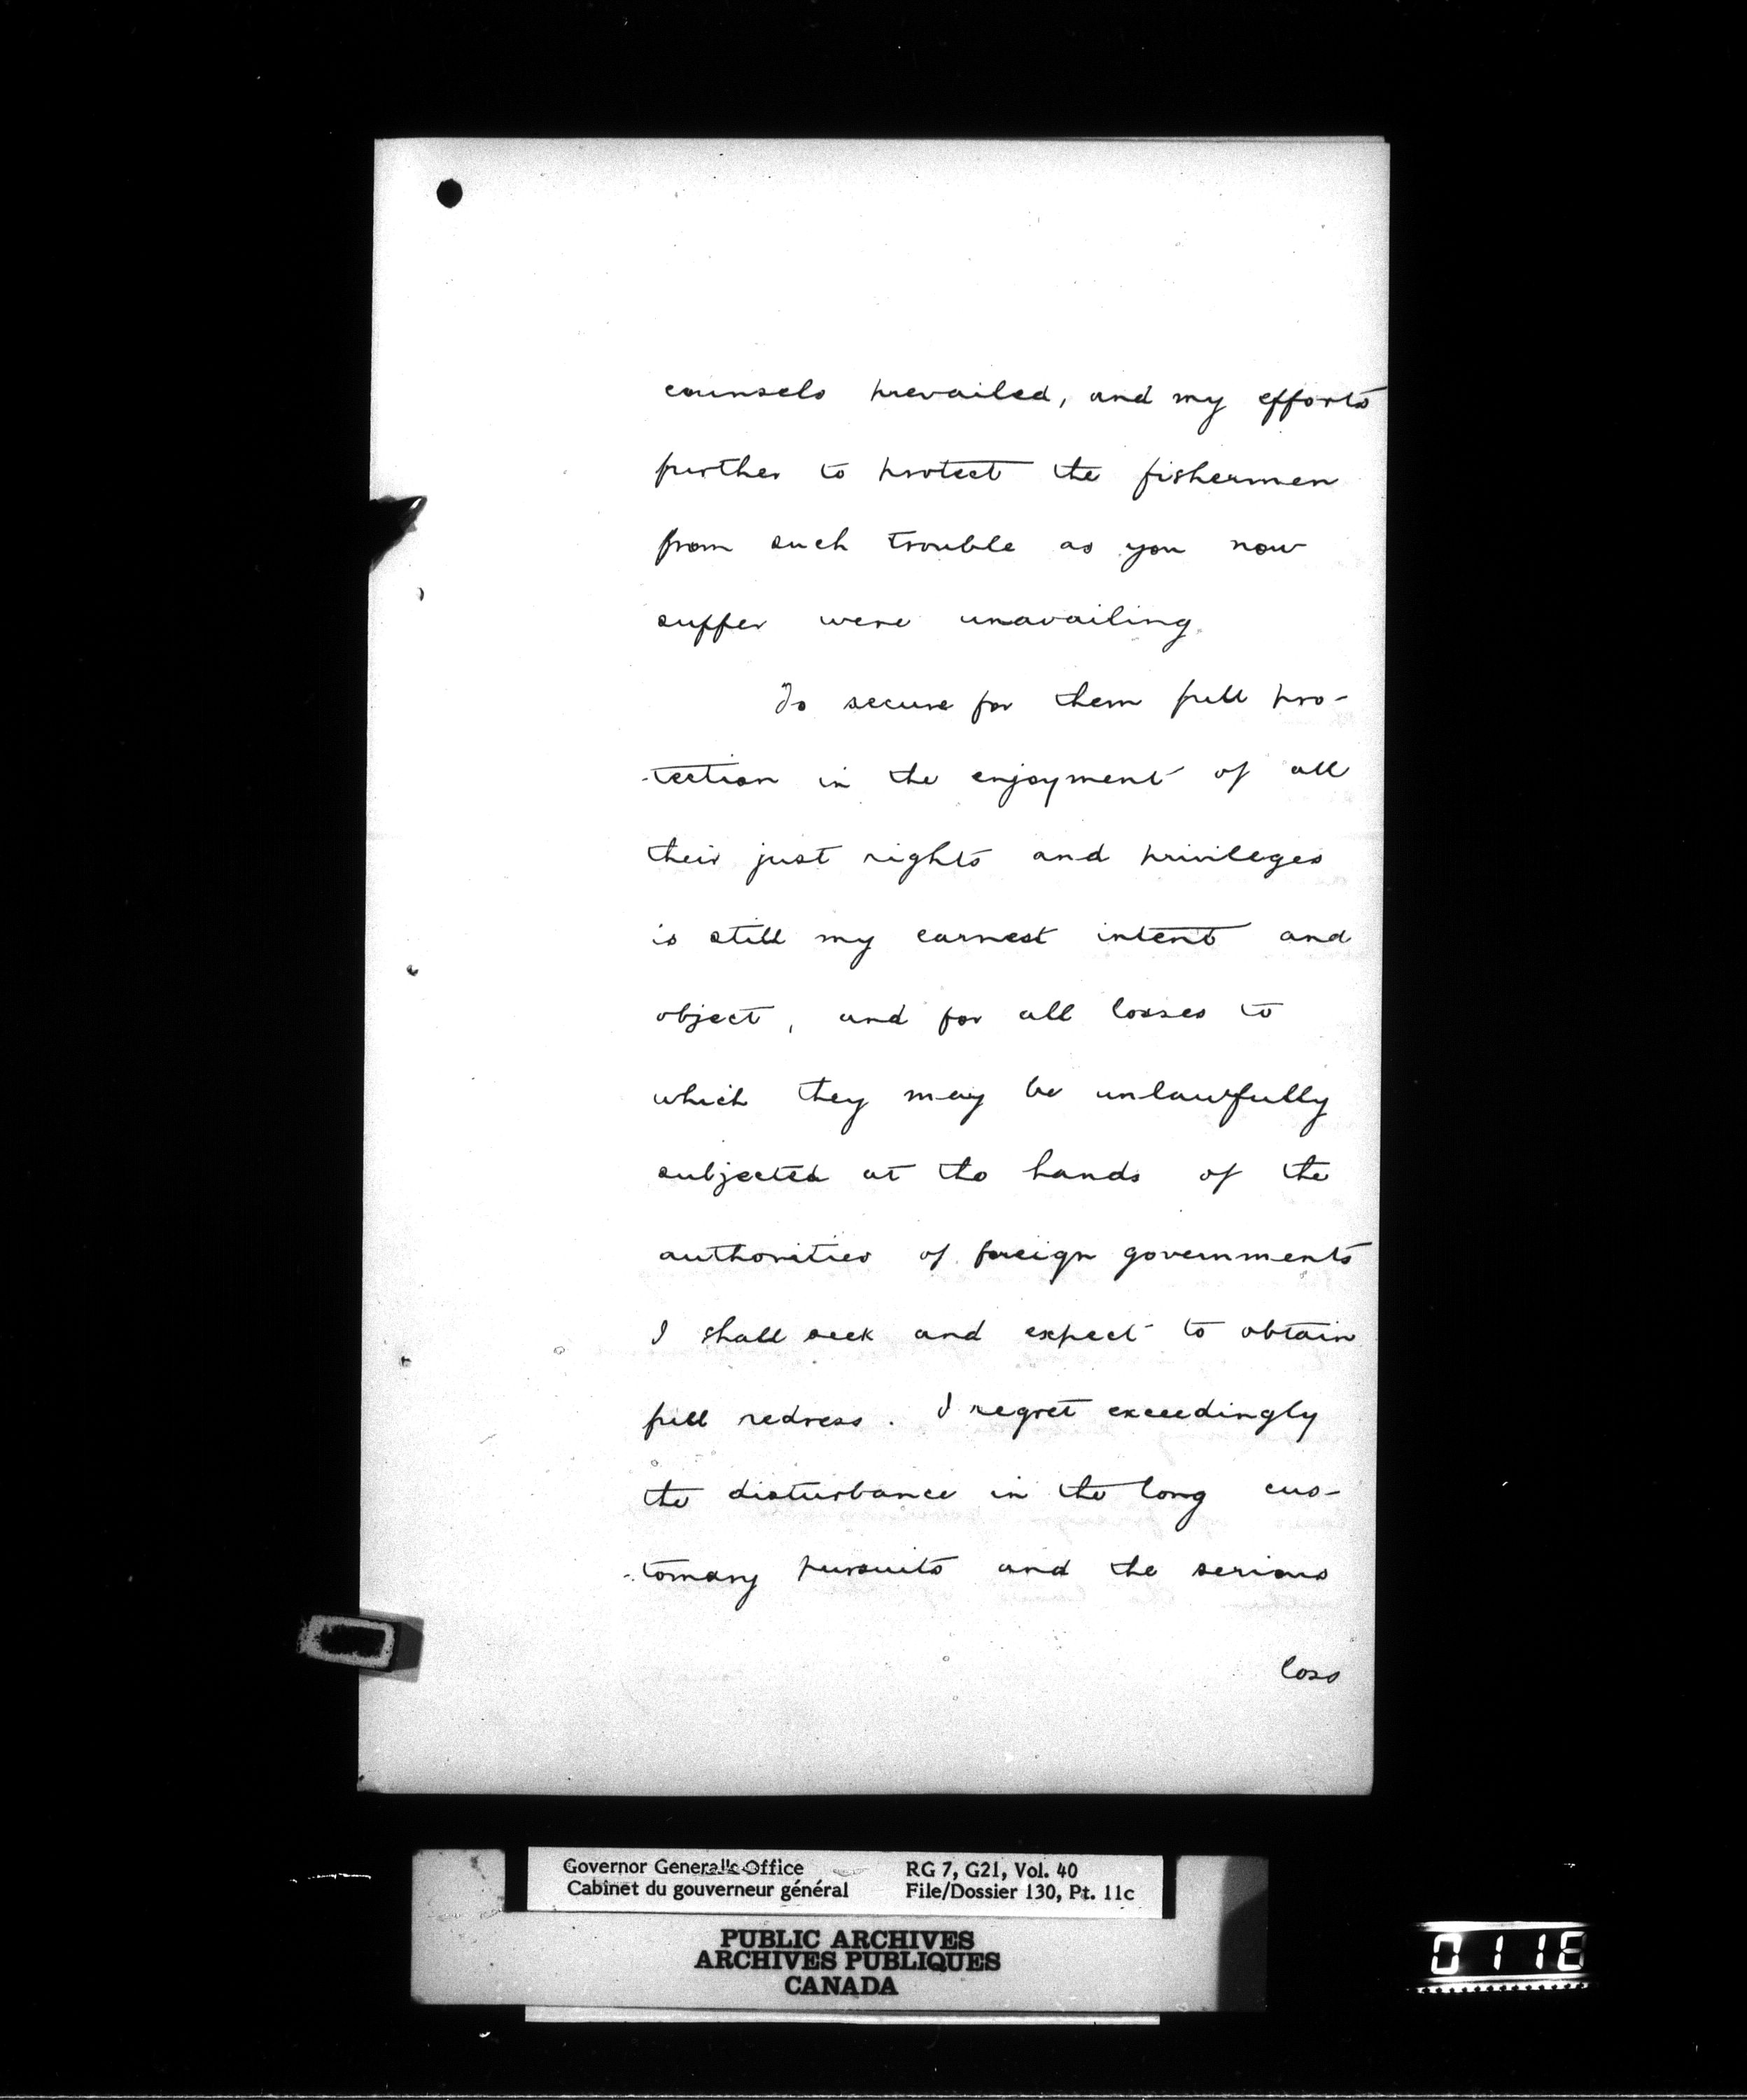 counsels prevailed, and my efforts
further to protect the fishermen
from such trouble as you now
suffer were unavailing.
To secure for them full pro-
-tection in the enjoyment of all
their just rights and privileges
is still my earnest intent and
object, and for all losses to
which they may be unlawfully
subjected at the hands of the
authorities of foreign governments
I shall seek and expect to obtain
full redress. I regret exceedingly
the disturbance in the long cus-
-tomary pursuits and the serious
loss
Governor General's Office
Cabinet du gouverneur général
RG 7, G21, Vol. 40
File/Dossier 130, Pt. 11c
PUBLIC ARCHIVES
ARCHIVES PUBLIQUES
CANADA